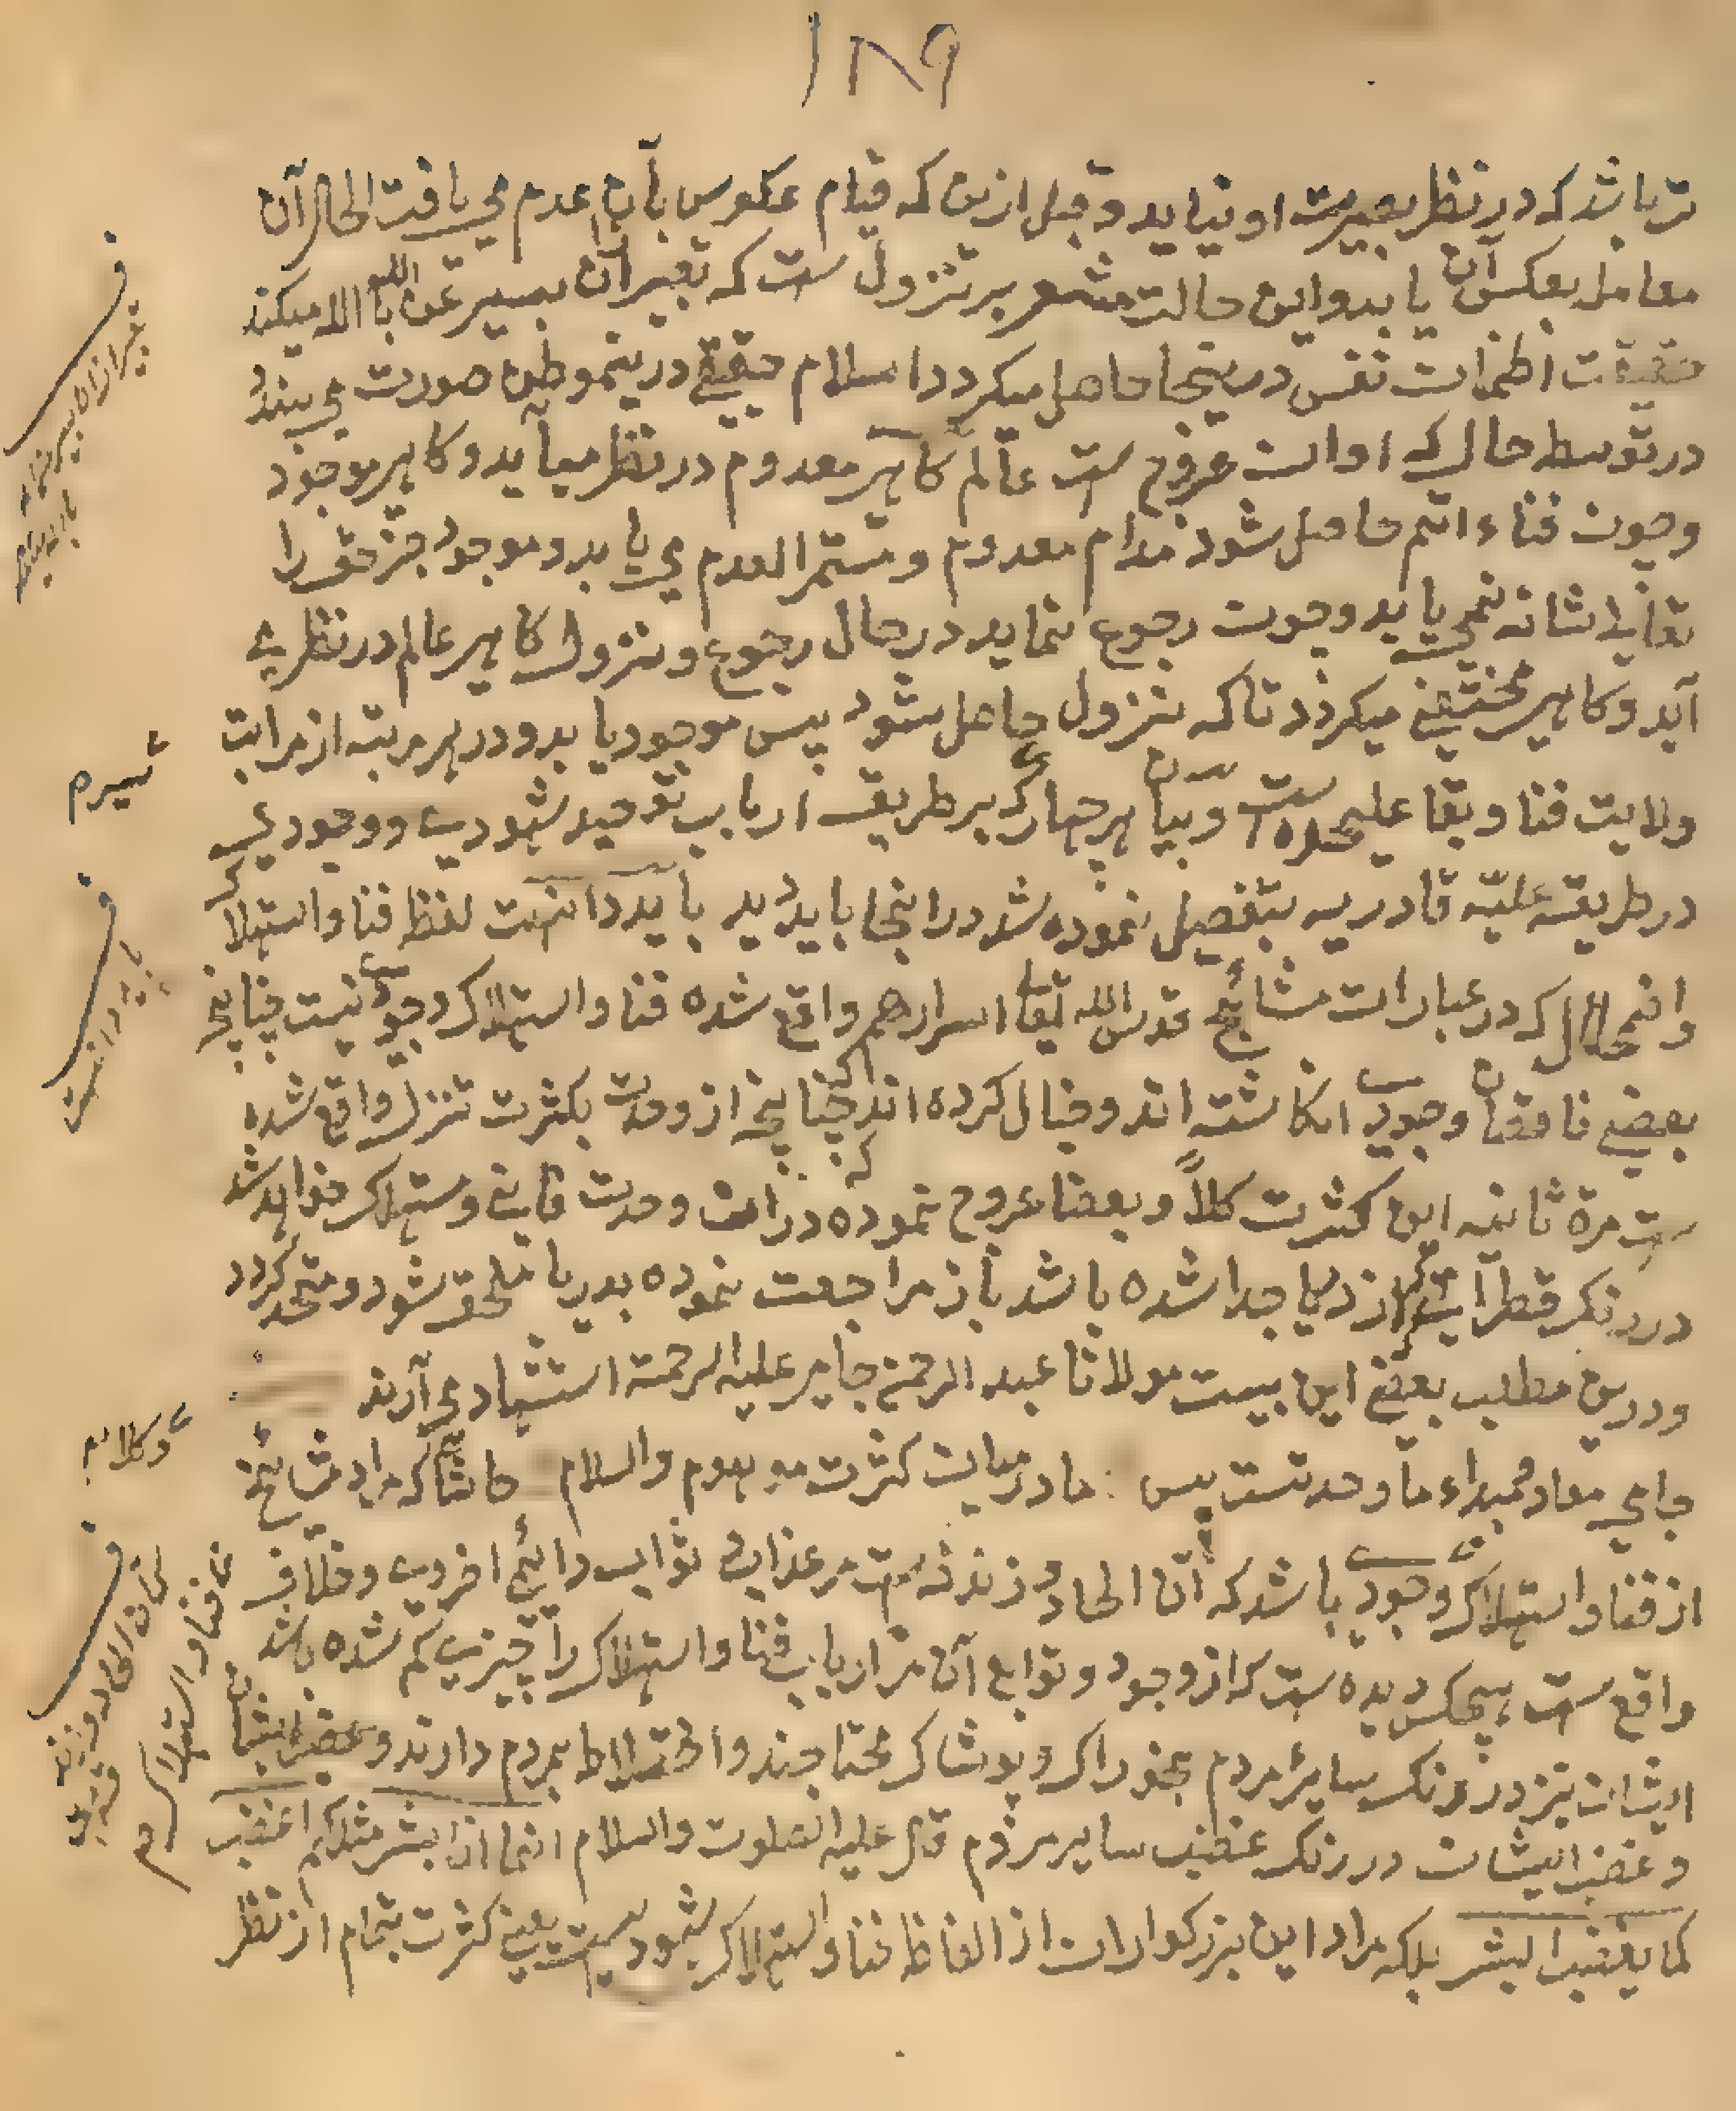 ۱۸۹
تر باشد که در نظر بصیرت او نیاید و قبل ازین که قیام عکوس بآن عدم می یافت الحال آن
معامله بعکس آن یابد و این حالت مشعر بر تنزول ست که تعبیر آن بسیر عن الله بالله میکند
حقیقت اطمینان نفس درینجا حاصل میکردد اسلام حقیقی درینموطن صورت می بندد
در توسط حال که اوان عروج ست عالم کاهی معدوم در نظر میآید و کاهی موجود
و چون فناء اتم حاصل شود مدام معدوم و مستمر العدم می یابد و موجود جز حق را
تعالی شانه نمی یابد و چون رجوع نماید در حال رجوع و نزول کاهی عالم در نظر می
آید و کاهی مختفی میکردد تا که نزول حاصل شود پس موجود یابد و در هر مرتبه از مراتب
ولایت فنا و بقا علیحده است و بیان هر چهار بر طریقه ارباب توحید شهودی و وجودی
در طریقه علیّه قادریه بتفصیل نموده شد در انجا باید دید باید دانست لفظ فنا و استهلاک
واضمحلال که در عبارات مشائخ قدس الله تعالی اسرارهم واقع شده فنا و استهلاک وجودی نیست چنانچه
بعضی ناقصان وجودی انکاشته اند و خیال کرده اند که چنانچه از وحدت بکثرت تنزل واقع شده
ست مرة ثانیه این کثرت کلاً و بعضا عروج نموده در ان وحدت فانی و مستهلک خواهد شد
در رنک قطرات که از دریا جدا شده باشد باز مراجعت نموده بدریا ملحق شود و متحد کردد
و درین مطلب بعضی این بیت مولانا عبد الرحمن جامی علیه الرحمة استشهاد می آرند
جامی معاد و مبداء ما وحدتست بس : ما در میان کثرت موهوم والسلام حاشا که مراد مشائخ
از فنا و استهلاک وجودی باشد که آن الحاد و زندقه ست مر عذاب و ثواب دائمی اخروی و خلاف
واقع ست هیچکس دیده ست که از وجود و توابع آن مر ارباب فنا و استهلاک را چیزی کم شده باشد
ایشان نیز در رنک سایر مردم بخوراک و پوشاک محتاجند و اختلاط بمردم دارند و
و غضب ایشان در رنک غضب سایر مردم قال علیه الصلوت والسلام انما انا بشر مثلکم اغضب
کما یغضب البشر بلکه مراد این بزرکواران از الفاظ فنا و استهلاک شهودیست یعنی کثرت بتمام از نظر
باید دانست